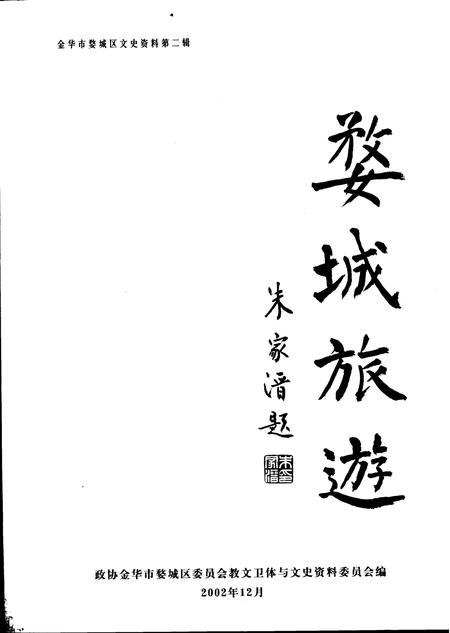 金华市婺城区文史资料第二辑
婺城旅遊
朱家溍题
朱家溍印
政协金华市婺城区委员会教文卫体与文史资料委员会编
2002年12月